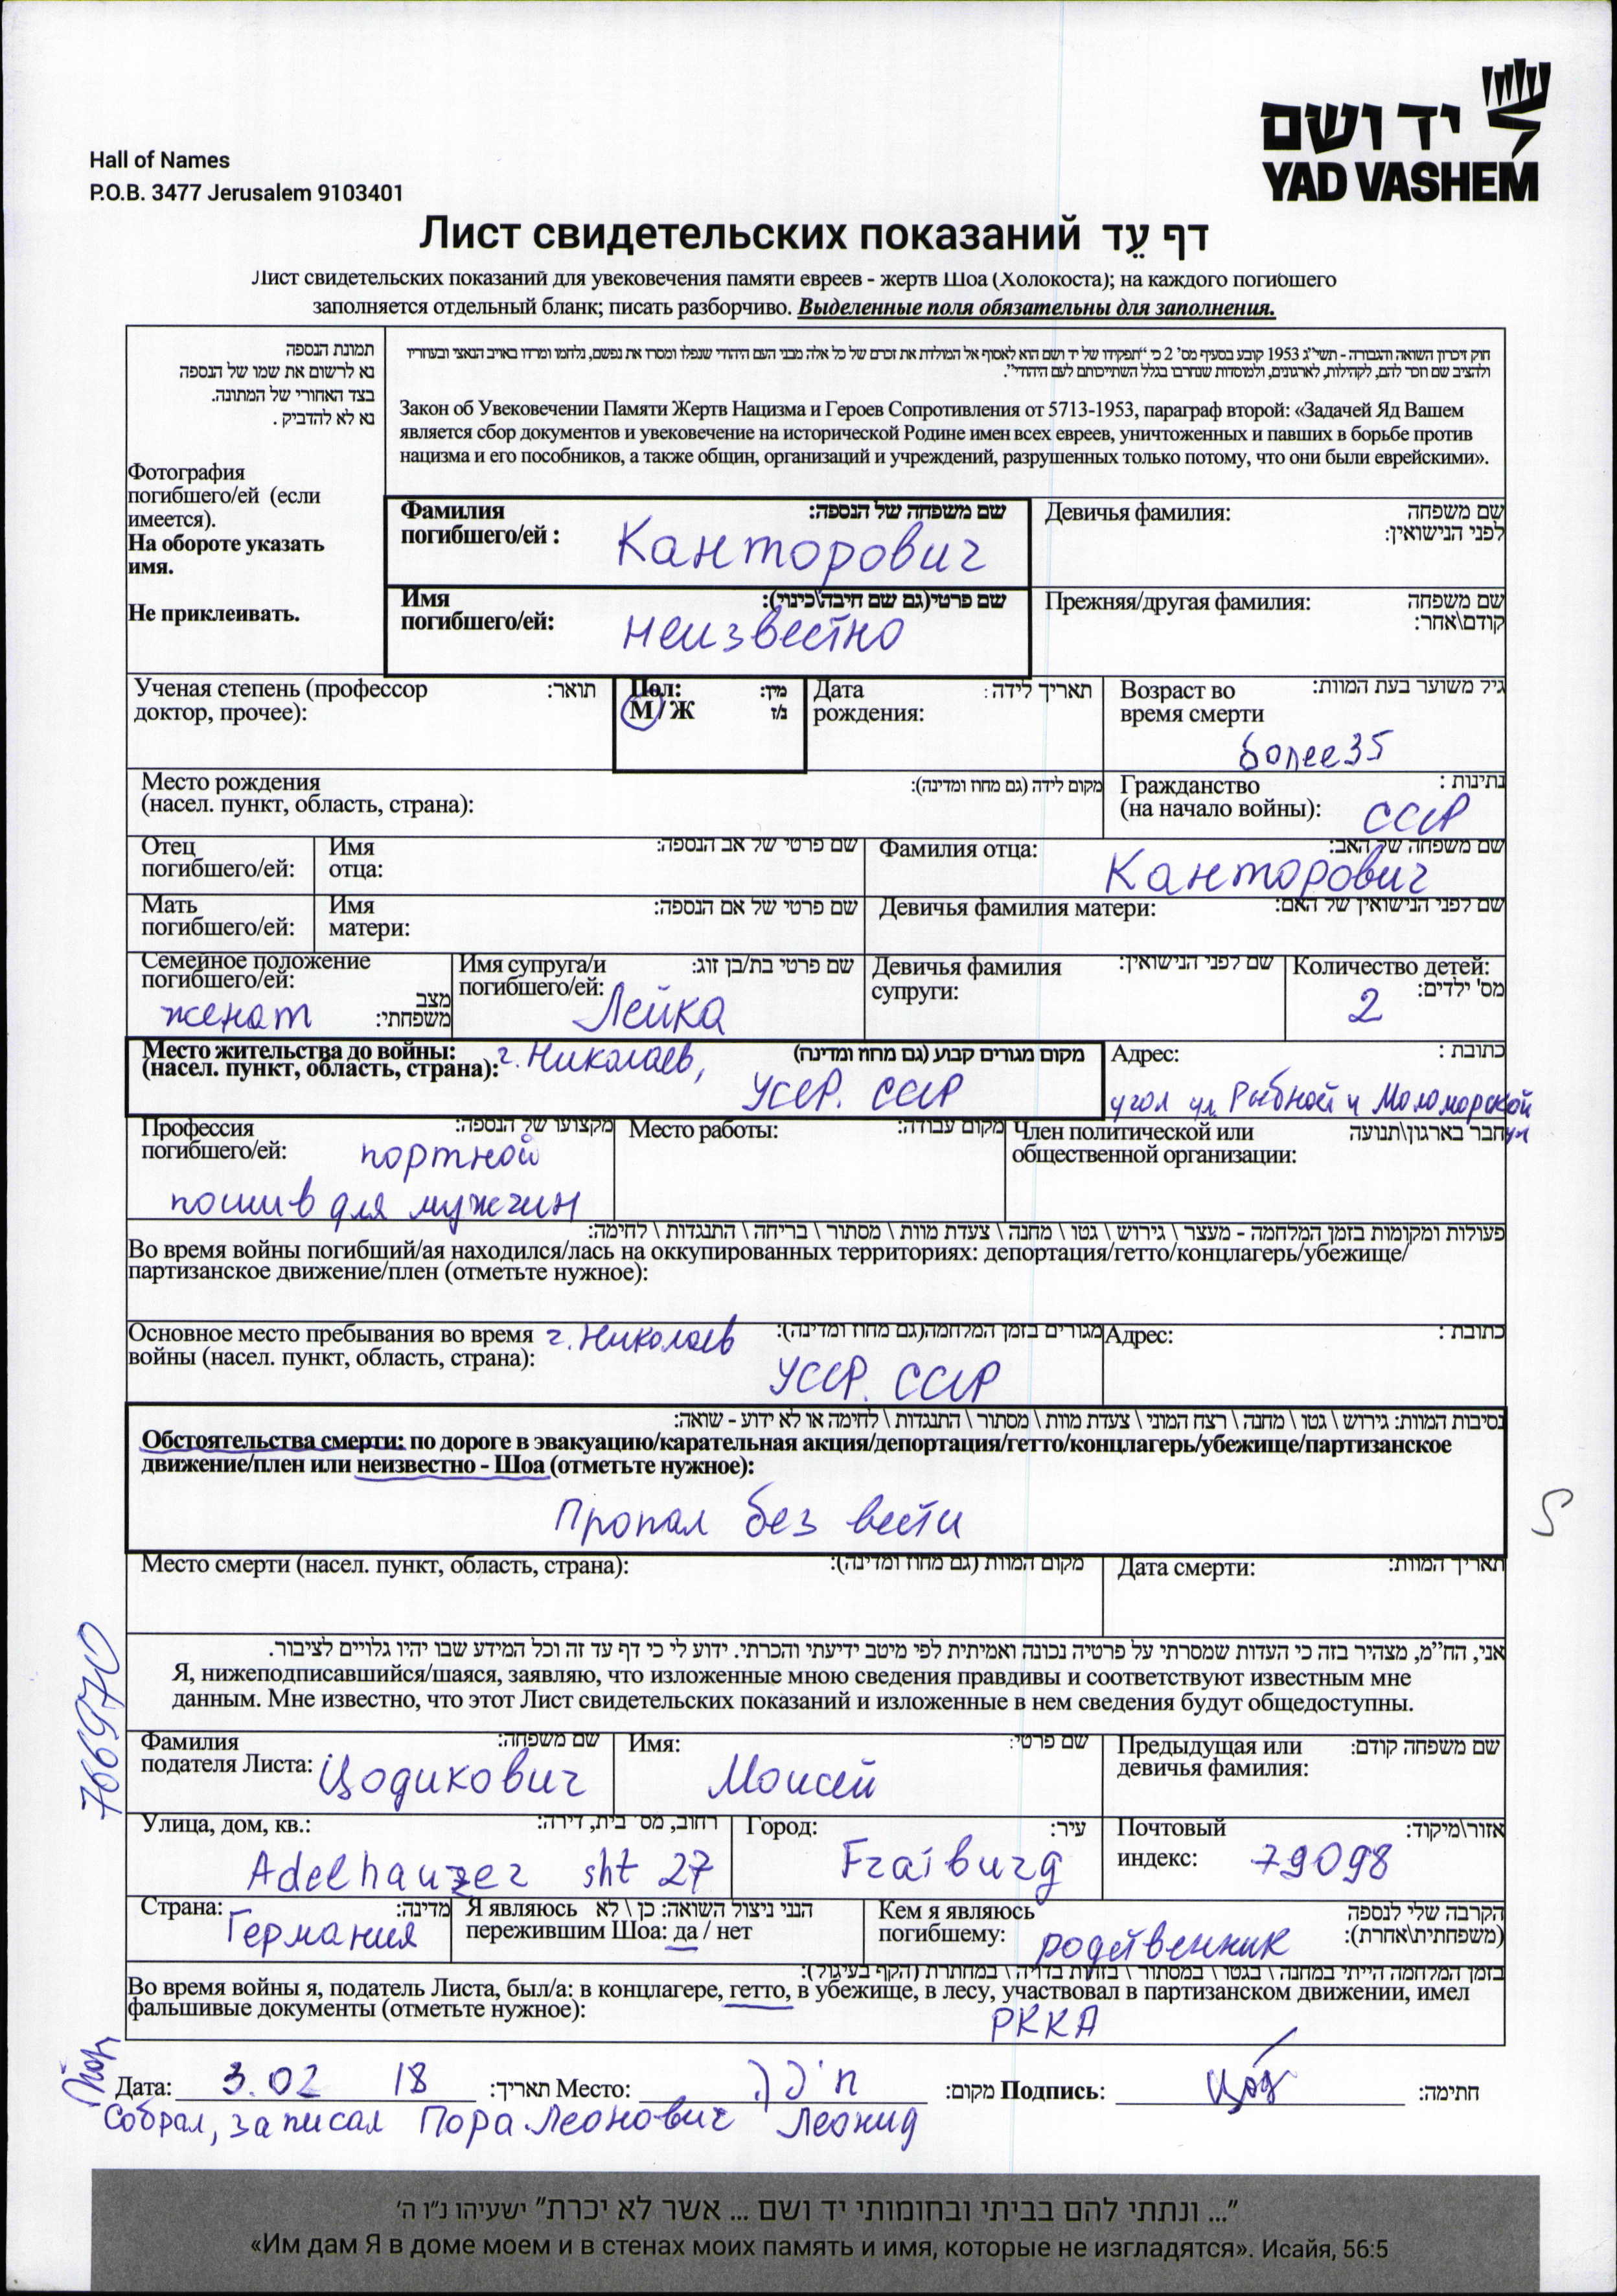 יד ושם
YAD VASHEM
Hall of Names
P.O.B. 3477 Jerusalem 9103401
Лист свидетельских показаний דף עֵד
Лист свидетельских показаний для увековечения памяти евреев - жертв Шоа (Холокоста); на каждого погибшего
заполняется отдельный бланк; писать разборчиво. Выделенные поля обязательны для заполнения.
תמונת הנספה
נא לרשום את שמו של הנספה
בצד האחורי של התמונה.
נא לא להדביק .
Фотография
погибшего/ей (если
имеется).
На обороте указать
имя.
Не приклеивать.
חוק זיכרון השואה והגבורה - תשי"ג 1953 קובע בסעיף מס' 2 כי "תפקידו של יד ושם הוא לאסוף אל המולדת את זכרם של כל אלה מבני העם היהודי שנפלו ומסרו את נפשם, נלחמו ומרדו באויב הנאצי ובעוזריו
ולהציב שם וזכר להם, לקהילות, לארגונים, ולמוסדות שנחרבו בגלל השתייכותם לעם היהודי".
Закон об Увековечении Памяти Жертв Нацизма и Героев Сопротивления от 5713-1953, параграф второй: «Задачей Яд Вашем
является сбор документов и увековечение на исторической Родине имен всех евреев, уничтоженных и павших в борьбе против
нацизма и его пособников, а также общин, организаций и учреждений, разрушенных только потому, что они были еврейскими».
Фамилия погибшего/ей : שם משפחה של הנספה:
Канторович
Девичья фамилия: שם משפחה לפני הנישואין:
Имя погибшего/ей: שם פרטי(גם שם חיבה\כינוי):
неизвестно
Прежняя/другая фамилия: שם משפחה קודם\אחר:
Ученая степень (профессор доктор, прочее): תואר:
Пол: מין:
М / Ж נ/ז
Дата рождения: תאריך לידה:
Возраст во время смерти גיל משוער בעת המוות:
более 35
Место рождения (насел. пункт, область, страна): מקום לידה (גם מחוז ומדינה):
Гражданство (на начало войны): נתינות :
СССР
Отец погибшего/ей:
Имя отца: שם פרטי של אב הנספה:
Фамилия отца: שם משפחה של האב:
Канторович
Мать погибшего/ей:
Имя матери: שם פרטי של אם הנספה:
Девичья фамилия матери: שם לפני הנישואין של האם:
Семейное положение погибшего/ей: מצב משפחתי:
женат
Имя супруга/и погибшего/ей: שם פרטי בת/בן זוג:
Лейка
Девичья фамилия супруги: שם לפני הנישואין:
Количество детей: מס' ילדים:
2
Место жительства до войны: (насел. пункт, область, страна): מקום מגורים קבוע (גם מחוז ומדינה)
г. Николаев,
УССР. СССР
Адрес: כתובת :
угол ул. Рыбной и Маломорской
ул
Профессия погибшего/ей: מקצועו של הנספה:
портной
пошив для мужчин
Место работы: מקום עבודה:
Член политической или общественной организации: חבר בארגון\תנועה
פעולות ומקומות בזמן המלחמה - מעצר \ גירוש \ גטו \ מחנה \ צעדת מוות \ מסתור \ בריחה \ התנגדות \ לחימה:
Во время войны погибший/ая находился/лась на оккупированных территориях: депортация/гетто/концлагерь/убежище/
партизанское движение/плен (отметьте нужное):
Основное место пребывания во время войны (насел. пункт, область, страна): מגורים בזמן המלחמה(גם מחוז ומדינה):
г. Николаев
УССР. СССР
Адрес: כתובת :
נסיבות המוות: גירוש \ גטו \ מחנה \ רצח המוני \ צעדת מוות \ מסתור \ התנגדות \ לחימה או לא ידוע - שואה:
Обстоятельства смерти: по дороге в эвакуацию/карательная акция/депортация/гетто/концлагерь/убежище/партизанское
движение/плен или неизвестно - Шоа (отметьте нужное):
Пропал без вести
Место смерти (насел. пункт, область, страна): מקום המוות (גם מחוז ומדינה):
Дата смерти: תאריך המוות:
אני, הח"מ, מצהיר בזה כי העדות שמסרתי על פרטיה נכונה ואמיתית לפי מיטב ידיעתי והכרתי. ידוע לי כי דף עד זה וכל המידע שבו יהיו גלויים לציבור.
Я, нижеподписавшийся/шаяся, заявляю, что изложенные мною сведения правдивы и соответствуют известным мне
данным. Мне известно, что этот Лист свидетельских показаний и изложенные в нем сведения будут общедоступны.
7669710
Фамилия подателя Листа: שם משפחה:
Цодикович
Имя: שם פרטי:
Моисей
Предыдущая или девичья фамилия: שם משפחה קודם:
Улица, дом, кв.: רחוב, מס' בית, דירה:
Adelhauzer sht 27
Город: עיר:
Fraiburg
Почтовый индекс: אזור\מיקוד:
79098
Страна: מדינה:
Германия
Я являюсь пережившим Шоа: да / нет הנני ניצול השואה: כן \ לא
Кем я являюсь погибшему: הקרבה שלי לנספה (משפחתית\אחרת):
родственник
בזמן המלחמה הייתי במחנה \ בגטו \ במסתור \ בזהות בדויה \ במחתרת (הקף בעיגול):
Во время войны я, податель Листа, был/а: в концлагере, гетто, в убежище, в лесу, участвовал в партизанском движении, имел
фальшивые документы (отметьте нужное):
РККА
Дата: 3.02 18 תאריך: Место: מקום: Подпись: Цод חתימה:
Собрал, записал Пора Леонович Леонид
"... ונתתי להם בביתי ובחומותי יד ושם ... אשר לא יכרת" ישעיהו נ"ו ה'
«Им дам Я в доме моем и в стенах моих память и имя, которые не изгладятся». Исайя, 56:5